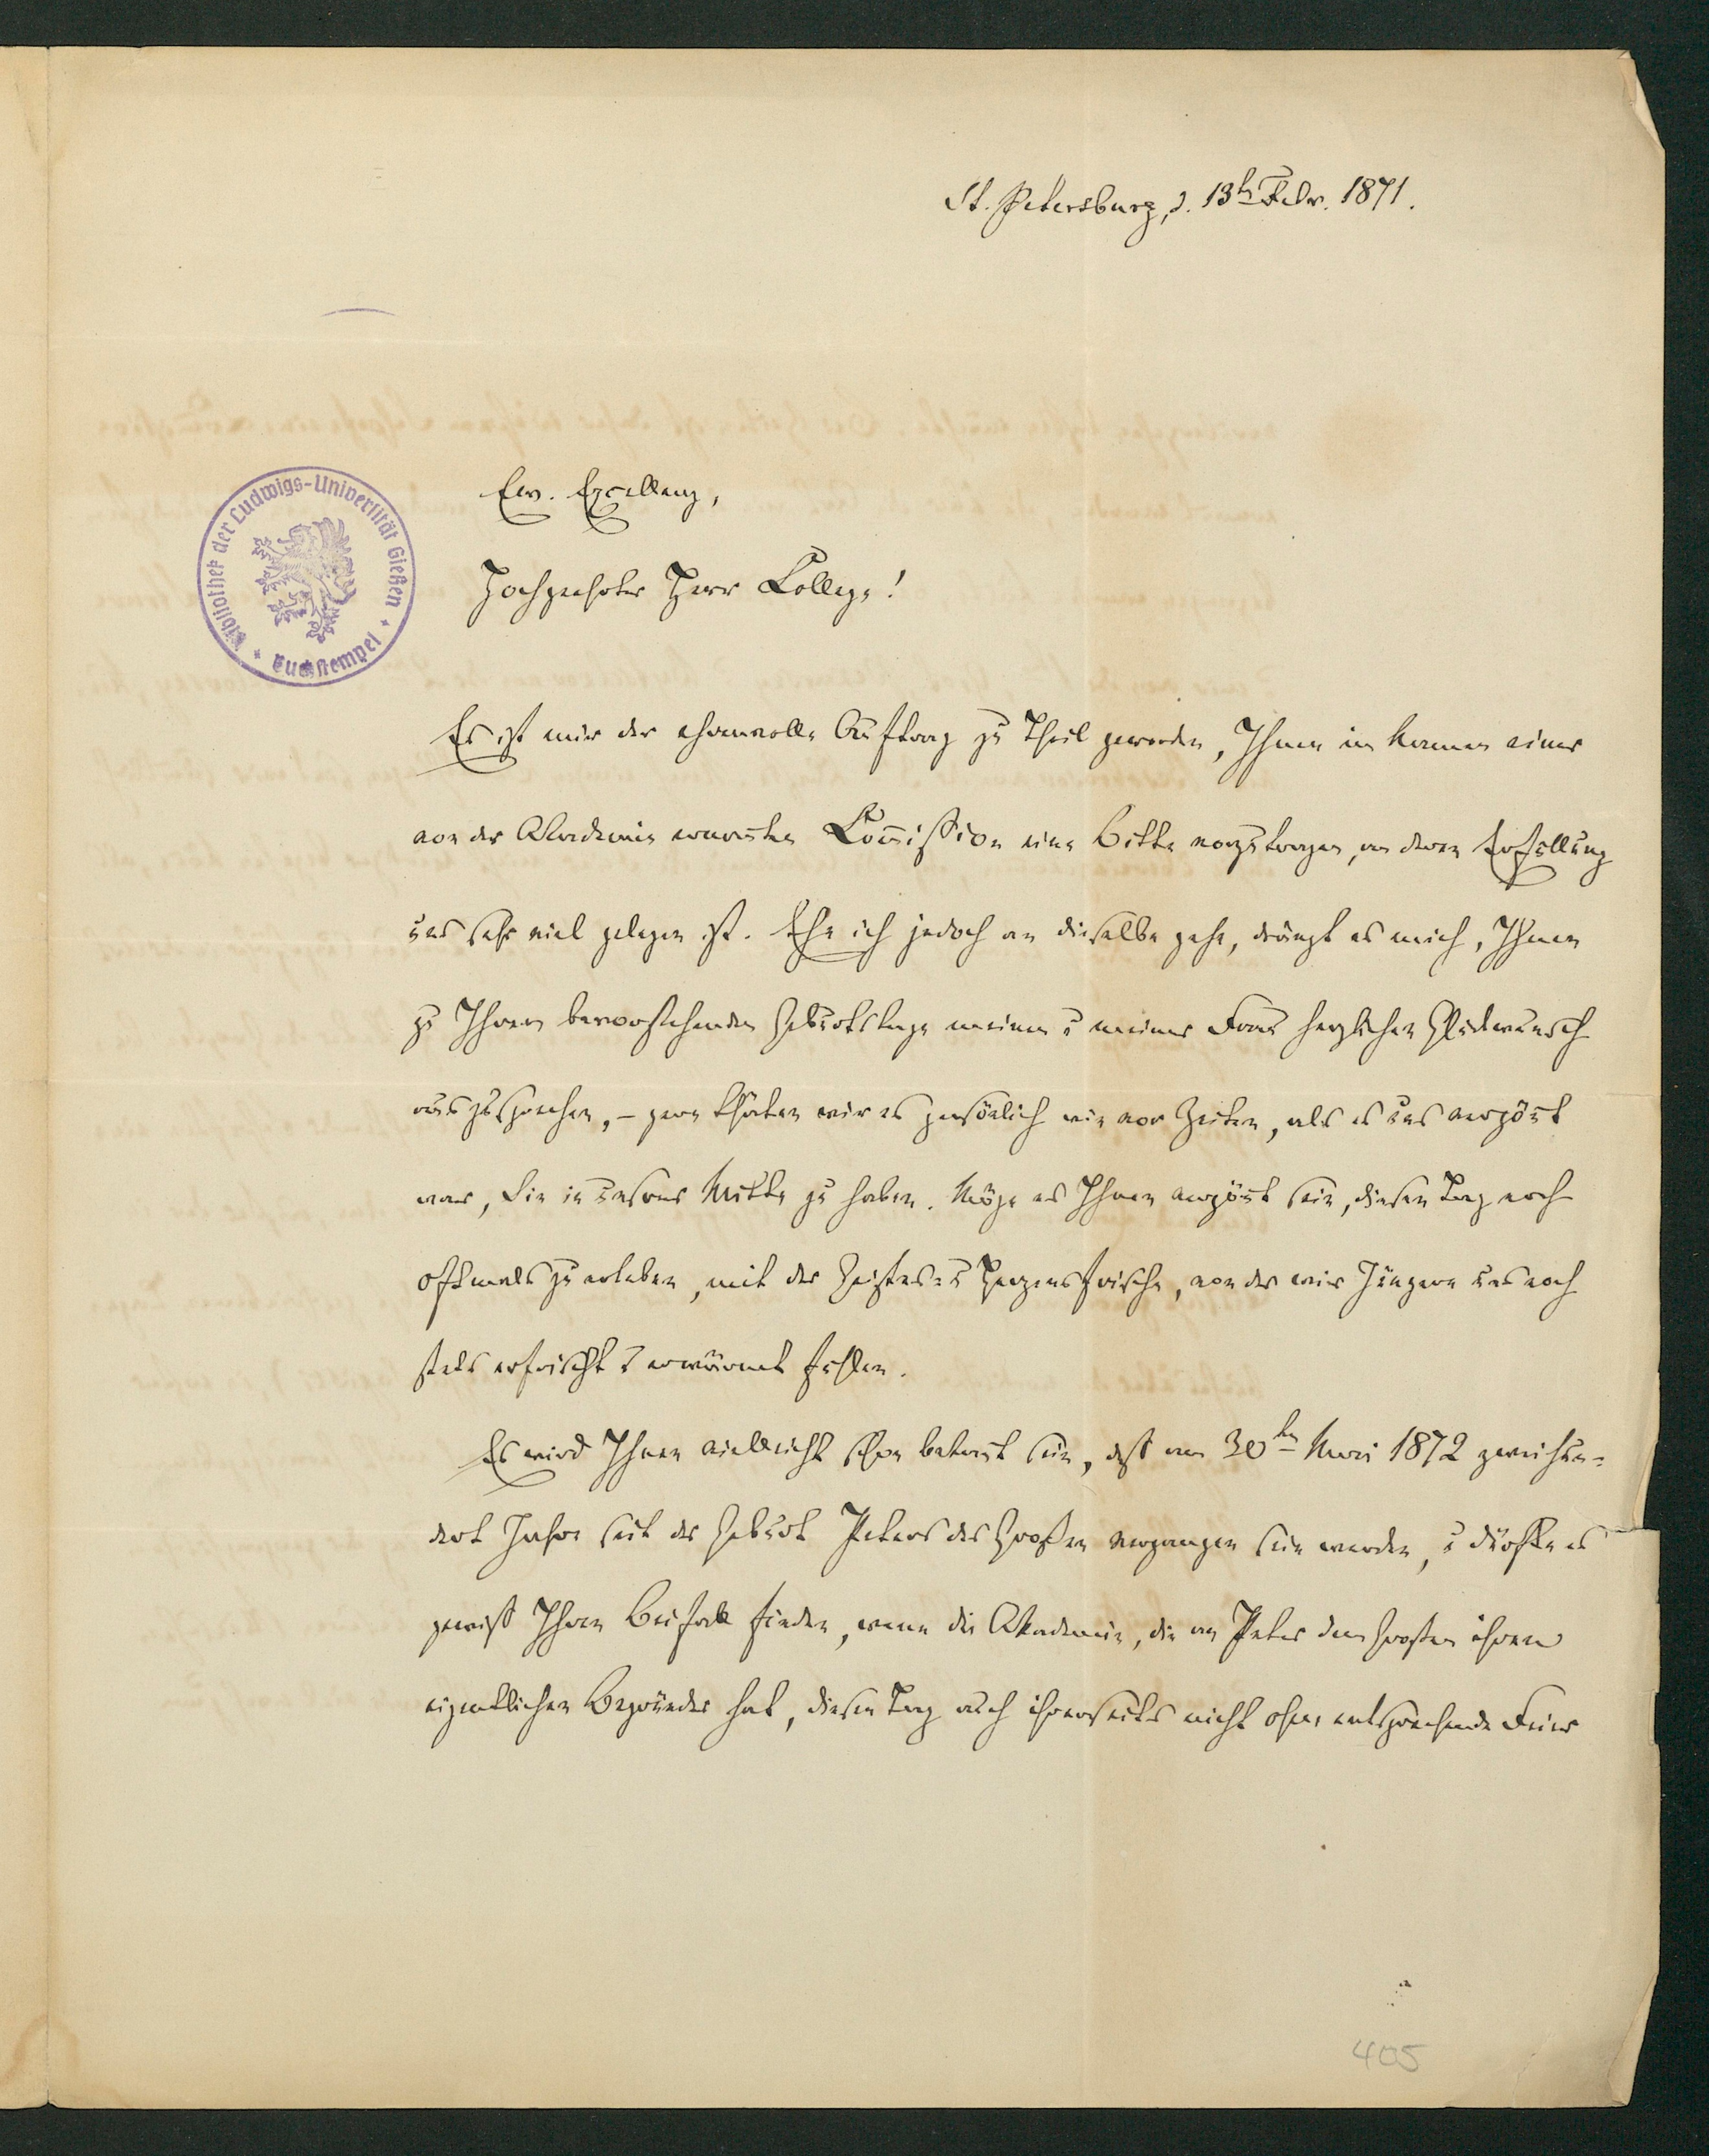 St. Petersburg, d. 13ten Febr. 1871.
Bibliothek der Ludwigs-Universität Gießen
Buchstempel
Ew. Excellenz,
Hochgeehrter Herr College!
Es ist mir der ehrenvolle Auftrag zu Theil geworden, Ihnen im Namen einer
von der Akademie ernannten Com̅ission eine Bitte vorzutragen, an deren Erfüllung
uns sehr viel gelegen ist. Ehe ich jedoch an dieselbe gehe, drängt es mich, Ihnen
zu Ihrem bevorstehenden Geburtstage meinen u meiner Frau herzlichen Glückwunsch
auszusprechen, – gern thäten wir es persönlich wie vor Zeiten, als es uns vergönnt
war, Sie in unserer Mitte zu haben. Möge es Ihnen vergönnt sein, diesen Tag noch
oftmals zu erleben, mit der Geistes- u Herzensfrische, von der wir Jüngern uns noch
stets erfrischt u erwärmt fühlen.
Es wird Ihnen vielleicht schon bekannt sein, daß am 30ten Mai 1872 zweihun-
dert Jahre seit der Geburt Peters des Großen vergangen sein werden, u dürfte es
gewiß Ihren Beifall finden, wenn die Akademie, die an Peter dem Großen ihren
eigentlichen Begründer hat, diesen Tag auch ihrerseits nicht ohne entsprechende Feier
405